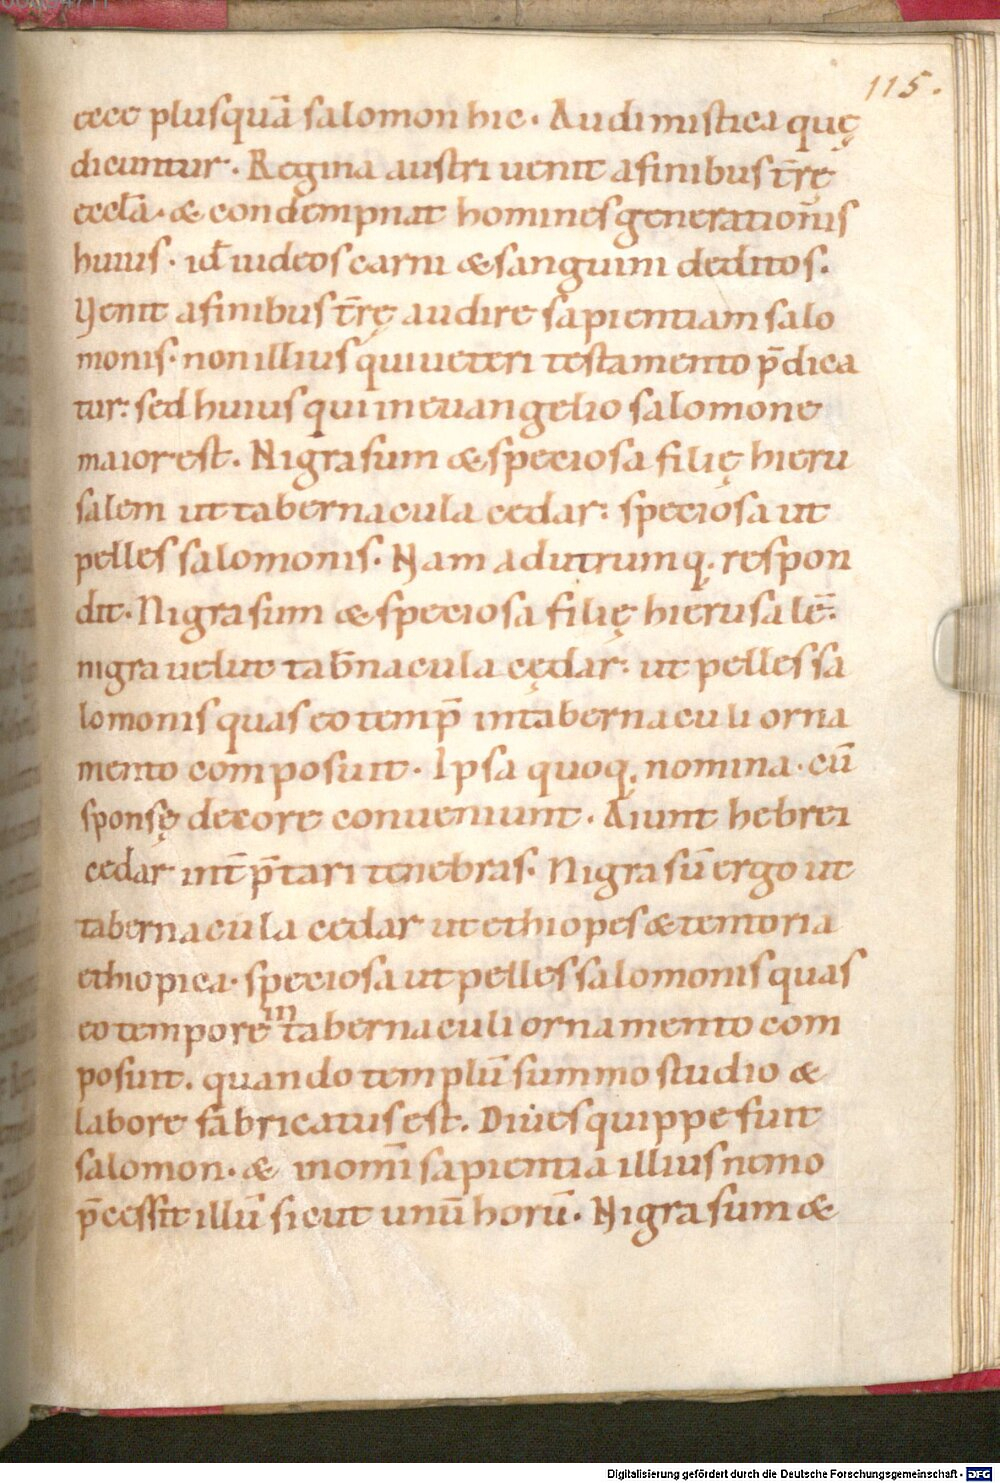 115.
ecce plusquā salomon hic. Audi mistica quę
dicuntur. Regina austri uenit a finibus t̄rę
eccła. & condempnat homines generationis
huius. id̄ iudeos carni & sanguini deditos.
Venit a finibus t̄rę audire sapientiam salo
monis. non illius qui ueteri testamento p̄dica
tur: sed huius qui in euangelio salomone
maior est. Nigra sum & speciosa filię hieru
salem ut tabernacula cedar: speciosa ut
pelles salomonis. Nam ad utrumq. respon
dit. Nigra sum & speciosa filię hierusalē.
nigra uelut tab̄nacula cędar: ut pelles sa
lomonis quas eo temp̄ in tabernaculi orna
mento composuit. Ipsa quoq. nomina. cū
sponsę decore conueniunt. Aiunt hebrei
cedar int̄p̄tari tenebras. Nigra sū ergo ut
tabernacula cedar ut ethiopes & tentoria
ethiopica. speciosa ut pelles salomonis quas
eo tempore in tabernaculi ornamento com
posuit. quando templū summo studio &
labore fabricatus est. Diues quippe fuit
salomon. & in om̄i sapientia illius nemo
p̄cessit illū sicut unū horū. Nigra sum &
Digitalisierung gefördert durch die Deutsche Forschungsgemeinschaft - DFG